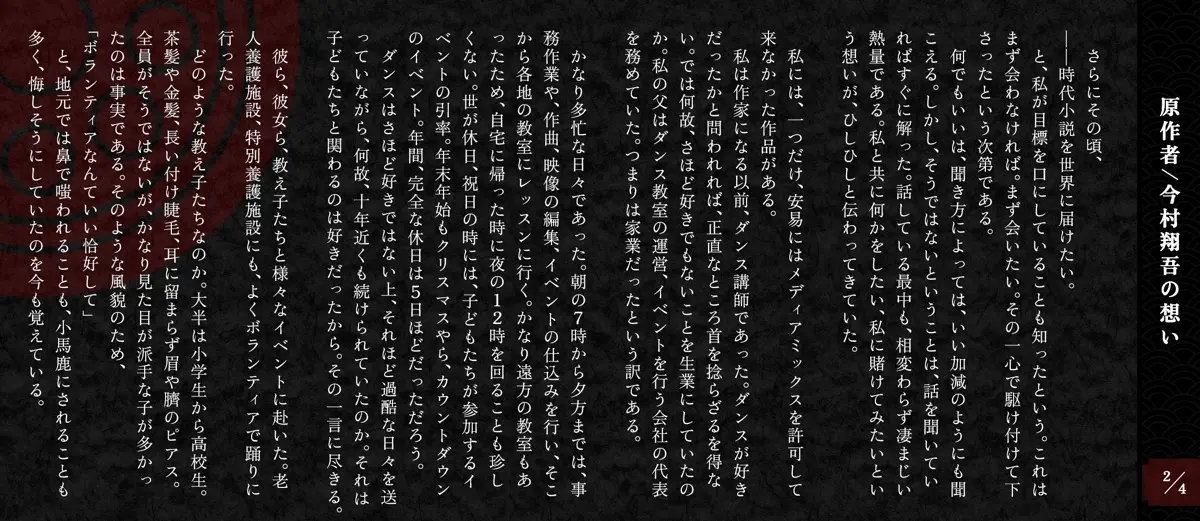 原作者／今村翔吾の想い
2/4
さらにその頃、
――時代小説を世界に届けたい。
と、私が目標を口にしていることも知ったという。これは
まず会わなければ。まず会いたい。その一心で駆け付けて下
さったという次第である。
何でもいいは、聞き方によっては、いい加減のようにも聞
こえる。しかし、そうではないということは、話を聞いてい
ればすぐに解った。話している最中も、相変わらず凄まじい
熱量である。私と共に何かをしたい、私に賭けてみたいとい
う想いが、ひしひしと伝わってきていた。
私には、一つだけ、安易にはメディアミックスを許可して
来なかった作品がある。
私は作家になる以前、ダンス講師であった。ダンスが好き
だったかと問われれば、正直なところ首を捻らざるを得な
い。では何故、さほど好きでもないことを生業にしていたの
か。私の父はダンス教室の運営、イベントを行う会社の代表
を務めていた。つまりは家業だったという訳である。
かなり多忙な日々であった。朝の7時から夕方までは、事
務作業や、作曲、映像の編集、イベントの仕込みを行い、そこ
から各地の教室にレッスンに行く。かなり遠方の教室もあ
ったため、自宅に帰った時に夜の12時を回ることも珍し
くない。世が休日、祝日の時には、子どもたちが参加するイ
ベントの引率。年末年始もクリスマスやら、カウントダウン
のイベント。年間、完全な休日は5日ほどだっただろう。
ダンスはさほど好きではない上、それほど過酷な日々を送
っていながら、何故、十年近くも続けられていたのか。それは
子どもたちと関わるのは好きだったから。その一言に尽きる。
彼ら、彼女ら、教え子たちと様々なイベントに赴いた。老
人養護施設、特別養護施設にも、よくボランティアで踊りに
行った。
どのような教え子たちなのか。大半は小学生から高校生。
茶髪や金髪、長い付け睫毛、耳に留まらず眉や臍のピアス。
全員がそうではないが、かなり見た目が派手な子が多かっ
たのは事実である。そのような風貌のため、
「ボランティアなんていい恰好して」
と、地元では鼻で嗤われることも、小馬鹿にされることも
多く、悔しそうにしていたのを今も覚えている。